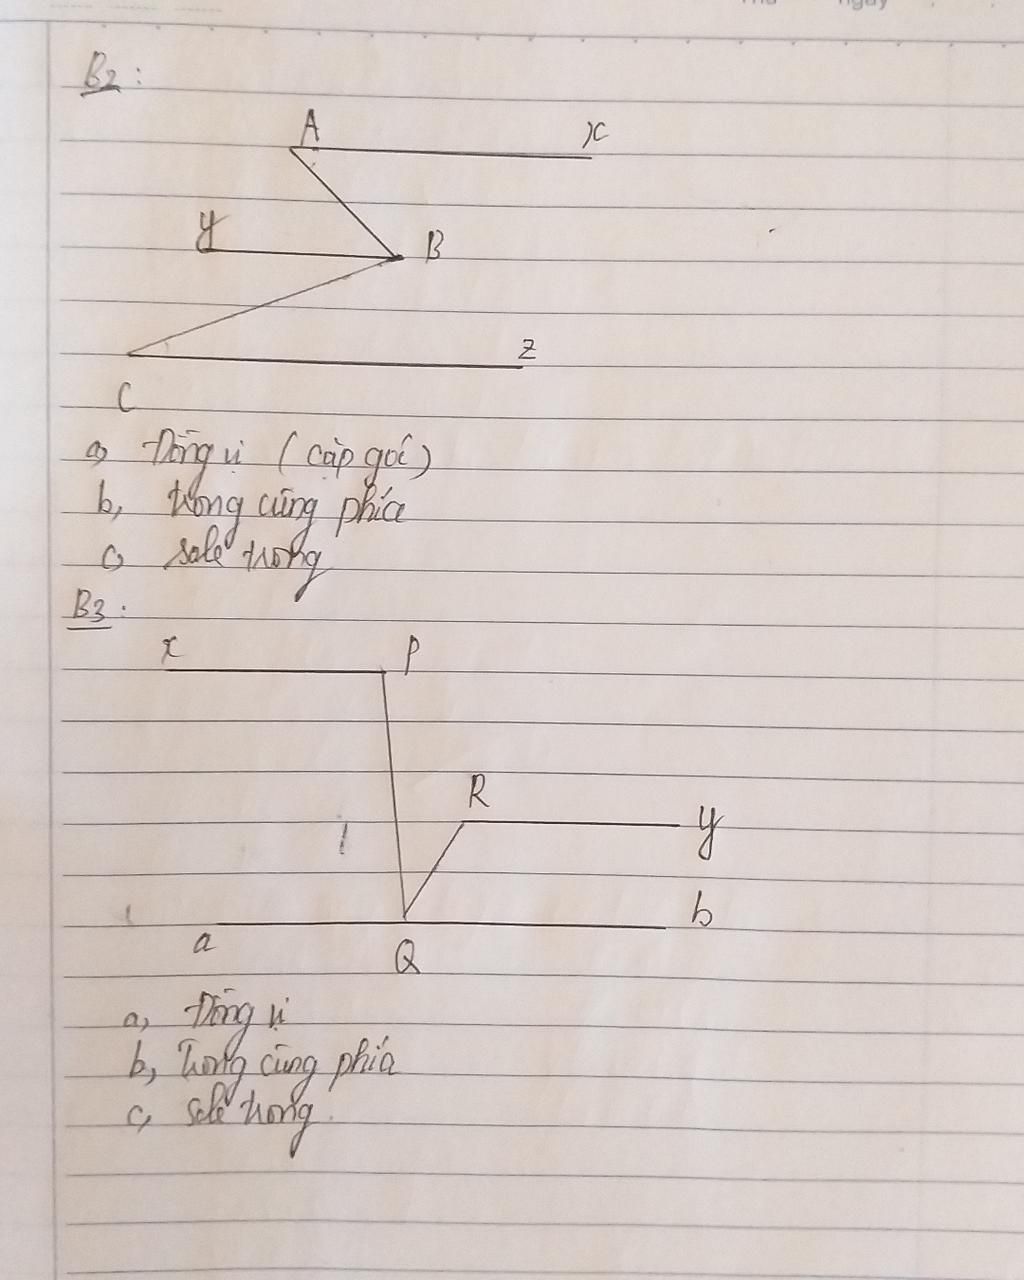 Thứ ngày
B2:
A x
y B
z
C
a, Đồng vị (cặp góc)
b, trong cùng phía
c, sole trong
B3:
x P
R
y
b
a
Q
a, Đồng vị
b, Trong cùng phía
c, sole trong.